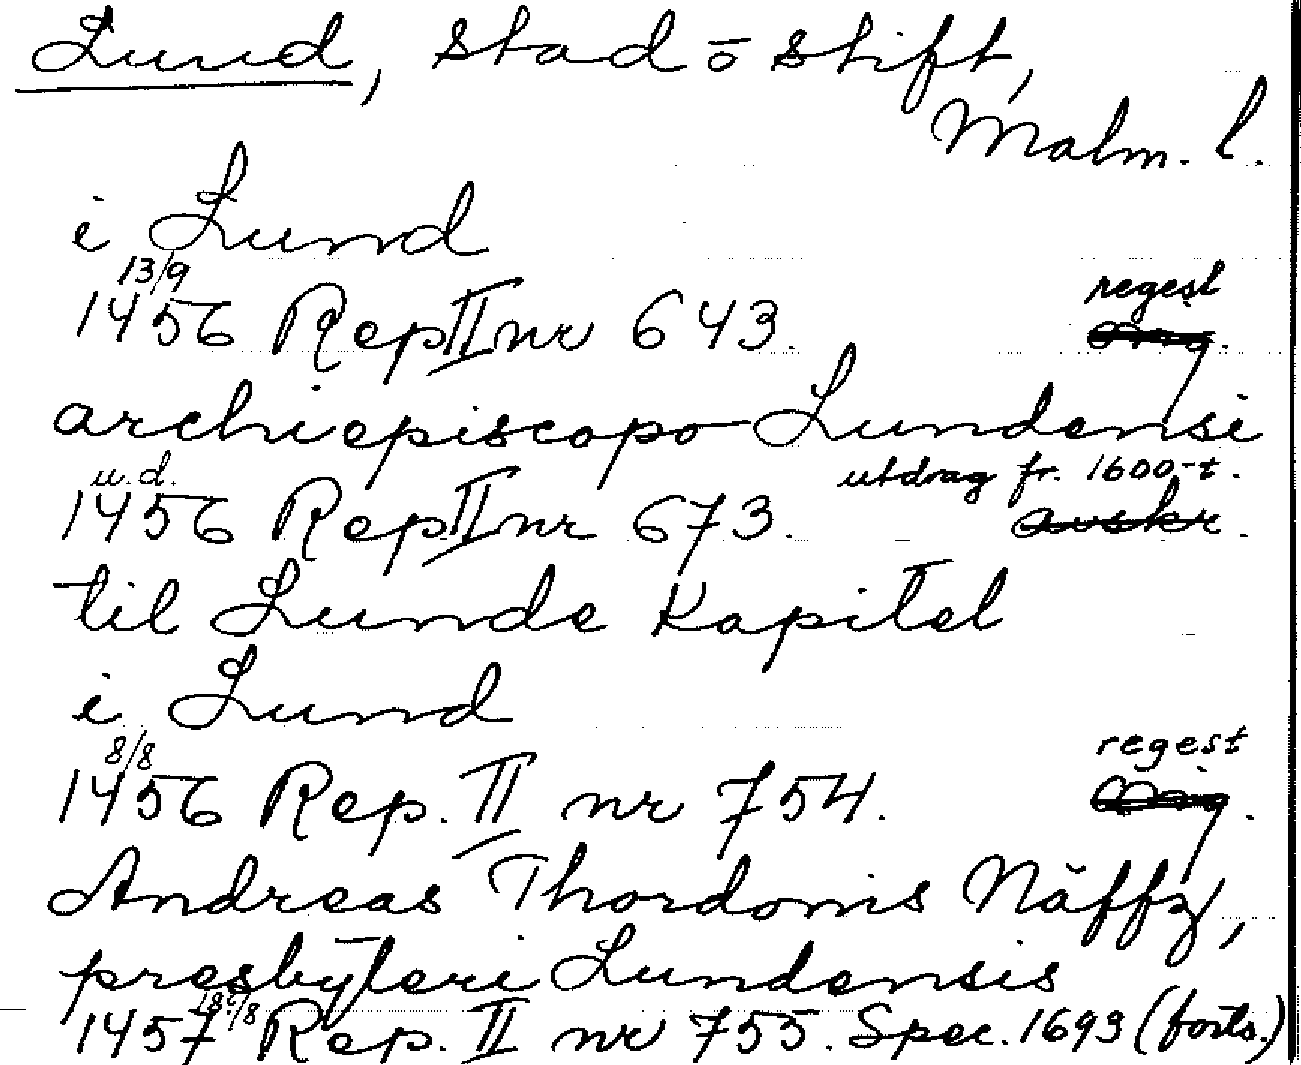 Lund, stad o stift,
Malm. l.
i Lund
13/9 regest
1456 Rep II nr 643. orig.
archiepiscopo Lundensi
u.d. utdrag fr. 1600-t.
1456 Rep. II nr 673. avskr.
til Lunde Kapitel
i Lund
8/8 regest
1456 Rep. II nr 754. orig.
Andreas Thordonis Näffz,
presbyteri Lundensis
1457 Rep. II nr 755. Spec. 1693 (forts.)